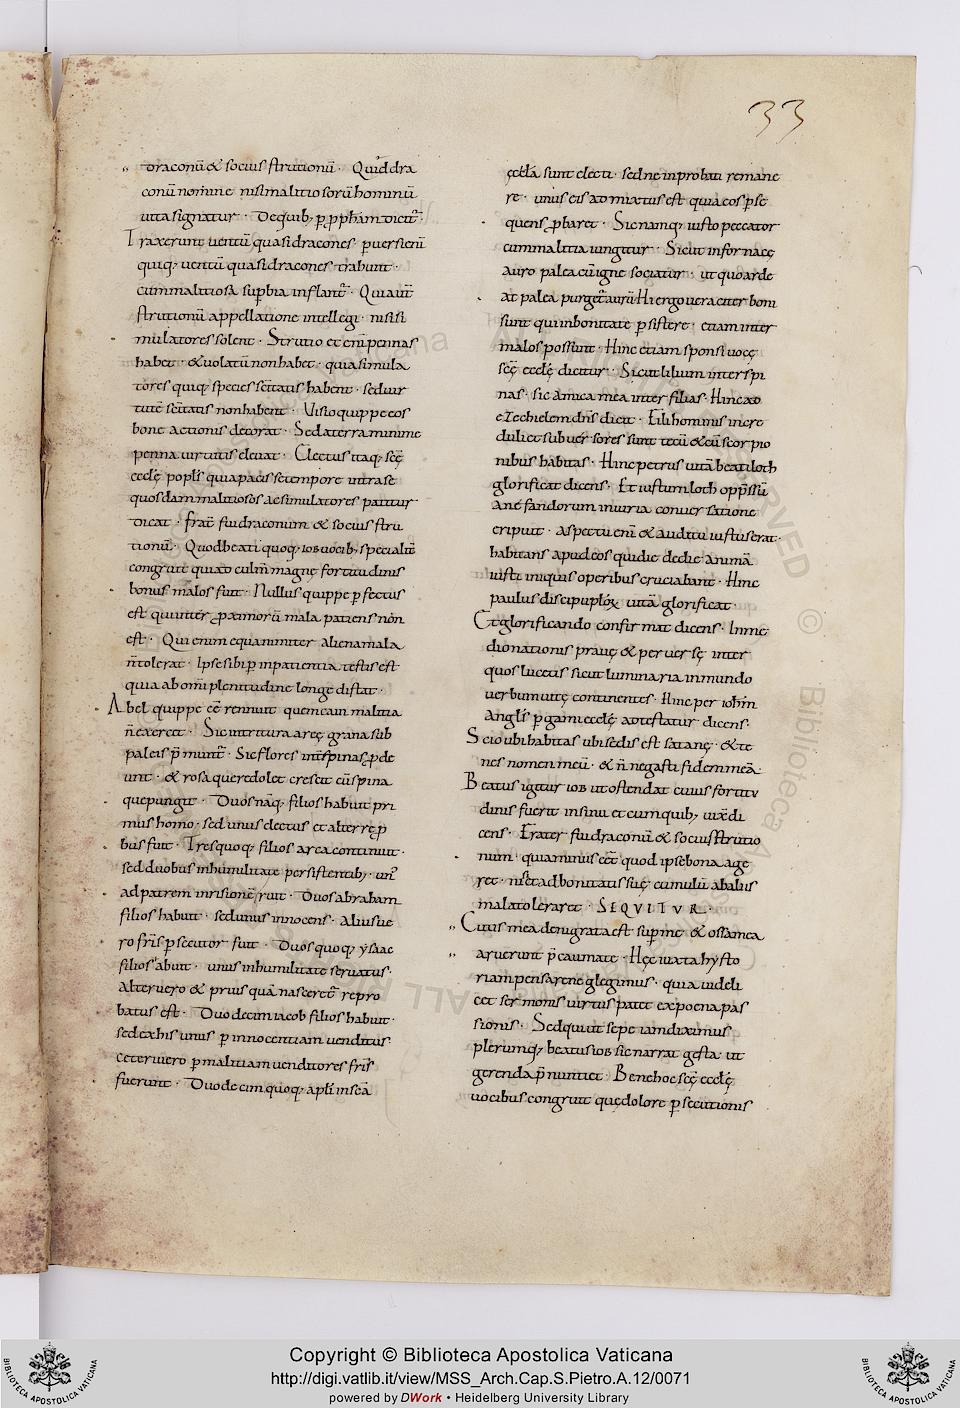 33
draconū & socius strutionū · Quid dra
conū nomine nisi malitiosorū hominū
uita signatur · De quib; p̱ p̱phā̄m dicit̄ ·
Traxerunt uentū quasi dracones · peruersi enī
quiq; uentū quasi dracones trahunt ·
cum malitiosa sup̱bia inflant̄ · Qui aūt
strutionū appellatione intellegi · nisi si
mulatores solent · Strutio et enī pennas
habet · & uolatū non habet · quia simula
tores quiq; species sc̄itatis habent · sed uir
tutē sc̄itatis non habent · Visio quippe eos
bone actionis decorat · Sed a terra minime
penna uirtutis eleuat · Electus itaq; sc̄ę
eccłę popłs quia pacis sę tempore intra se
quosdam malitiosos ac simulatores patitur
dicat · frat̄ fui draconum & socius stru
tionū · Quod beati quoq; iob uocib; specialit̄
congruit qui ad culm̄ magnę fortitudinis
bonus malos fuit · Nullus quippe p̱fectus
est qui inter p̱ximorū mala patiens nōn
est · Qui enim equanimiter aliena mala
n̄ tolerat · Ipse sibi p̱ inpatientia testis est
quia ab om̄i plenitudine longe distat ·
Abel quippe eē rennuit quem cain malitia
n̄ exercet · Sic in tritura areę grana sub
paleis p̄muntr̄ · Sic flores int̄ spinas p̱de
unt · & rosa quę redolet crescit cū spina
quę pungit · Duos nāq; filios habuit pri
mus homo · sed unus electus et alter rep̱
bus fuit · Tres quoq; filios arca continuit ·
sed duobus in humilitate persistentib; un̄
ad patrem inrisionē ruit · Duos abraham
filios habuit · sed unus innocens · Alius ue
ro fr̄is p̱secutor fuit · Duos quoq; ysaac
filios habuit · unus in humilitate seruatus ·
Alter uero & prius quā nasceret̄ repro
batus est · Duodecim iacob filios habuit ·
sed ex his unus p̱ innocentiam uenditus ·
ceteri uero p̱ malitiam uenditores fr̄is
fuerunt · Duodecim quoq; apłi in sc̄ā
ęccłā sunt electi · sed ne inprobati remane
re · unus eis admixtus est qui a eos p̱se
quens p̱baret · Sic namq; iusto peccator
cum malitia iungitur · Sicut in fornace
auro palea cū igne sociatur · ut quo arde
at palea purget̄ aurū Hi ergo ueraciter boni
sunt qui in bonitate p̱sistere · etiam inter
malos possunt · Hinc etiam sponsi uocę
sc̄ę eccłę dicitur · Sicut lilium inter spi
nas · sic amica mea inter filias · Hinc ad
ezechielem dn̄s dicit · Fili hominis incre
duli et subuersores sunt tecū & cū scorpio
nibus habitas · Hinc petrus uitā beati loth
glorificat dicens · Et iustum loth opp̱ssū
a nefandorum iniuria conuersatione
eripuit · aspectu enī & auditu iustus erat ·
habitans apud eos qui die de die animā
iusti iniquis operibus cruciabant · Hinc
paulus discipulorū uitā glorificat ·
Et glorificando confirmat dicens · In me
dio nationis prauę & peruersę inter
quos lucetis sicut luminaria in mundo
uerbum uitę continentes · Hinc per ioh̄m
anglīs p̱gami eccłę adtestatur dicens ·
Scio ubi habitas ubi sedis est satanę · & te
nes nomen meū · & n̄ negasti fidem meā ·
Beatus igitur iob ut ostendat cuius fortitu
dinis fuerit insinuet cum quib; uix̄ di
cens · Frater fui draconū & socius strutio
num · quia minus eēt quod ipse bona age
ret · nisi & ad bonitatis suę cumulū ab aliis
mala toleraret · SEQVITVR ·
Cutis mea denigrata est sup̱ me & ossa mea
aruerunt p̄ caumate · Hęc iuxta hysto
riam pensare neglegimus · quia uideli
cet sermonis uirtus patet ex poena pas
sionis · Sed qui ut sepe iam diximus
plerumq; beatus iob sic narrat gesta · ut
gerenda p̄nuntiet · Bene hoc sc̄ę eccłę
uocibus congruit quę dolore p̱secutionis
Copyright © Biblioteca Apostolica Vaticana
http://digi.vatlib.it/view/MSS_Arch.Cap.S.Pietro.A.12/0071
powered by DWork • Heidelberg University Library